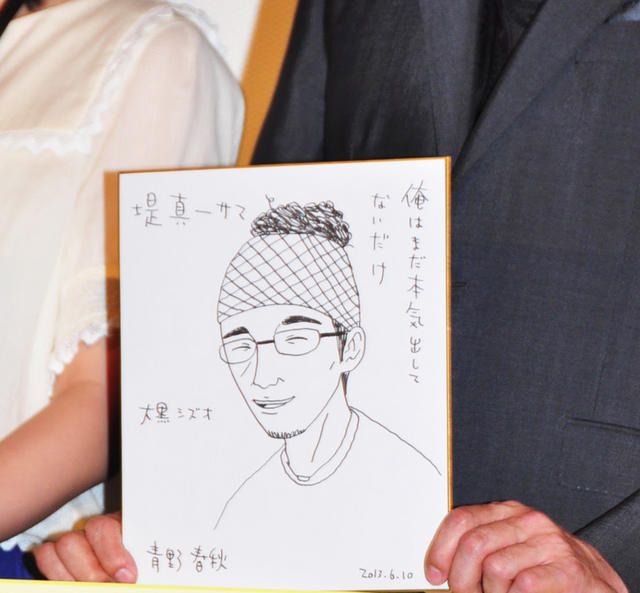 俺はまだ本気出して
ないだけ
堤真一サマ
大黒シズオ
青野春秋
2013.6.10